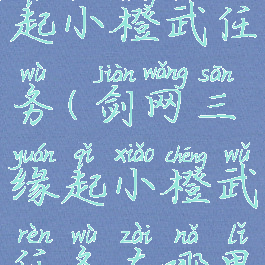 起小橙武任
wù jiàn wǎng sān
务(剑网三
yuán qǐ xiǎo chéng wǔ
缘起小橙武
rèn wù zài nǎ lǐ
任务在哪里